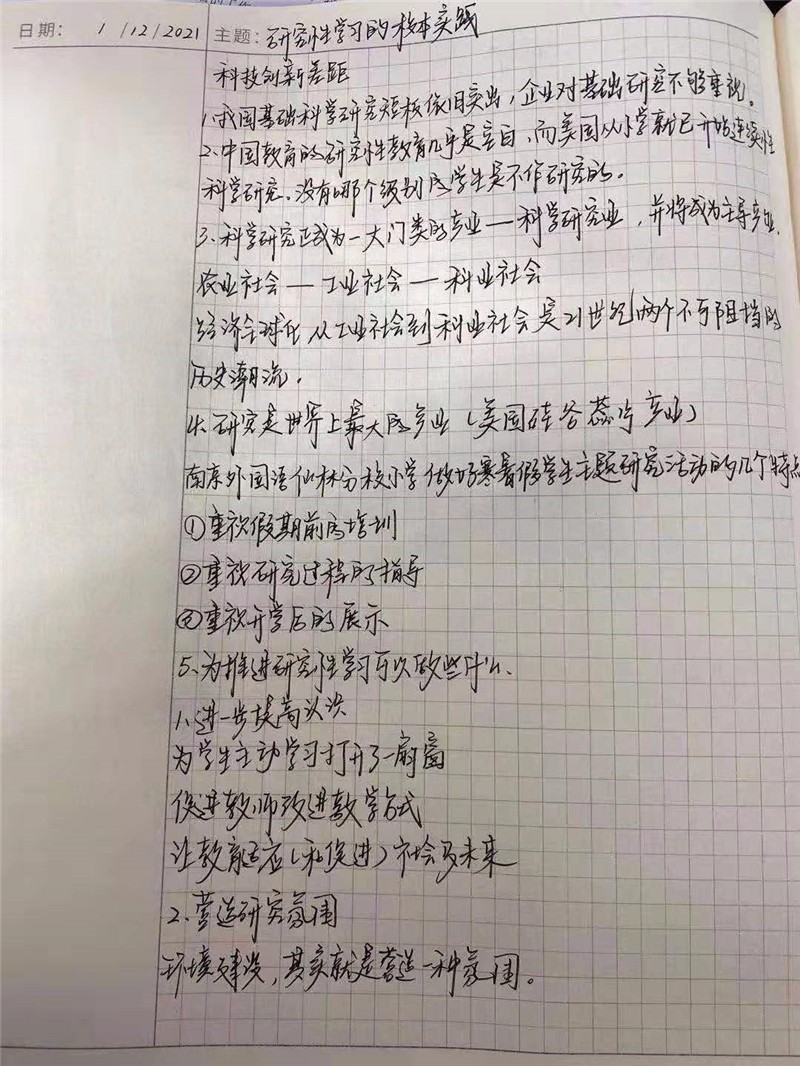 日期： 1 / 12 / 2021 主题：研究性学习的校本实践
科技创新差距
1.我国基础科学研究短板依旧突出，企业对基础研究不够重视。
2.中国教育的研究性教育几乎是空白，而美国从小学就已开始连续性
科学研究，没有哪个级别的学生是不作研究的。
3.科学研究正成为一大门类的产业—科学研究业，并将成为主导产业，
农业社会—工业社会—科业社会
经济全球化 从工业社会到科业社会是21世纪两个不可阻挡的
历史潮流。
4.研究是世界上最大的产业（美国硅谷蕊片产业）
南京外国语仙林分校小学做好寒暑假学生主题研究活动的几个特点
①重视假期前的培训
②重视研究过程的指导
③重视开学后的展示
5.为推进研究性学习可以做些什么.
1.进一步提高认识
为学生主动学习打开了一扇窗
促进教师改进教学方式
让教育适应（和促进）社会及未来
2.营造研究氛围
环境建设，其实就是营造一种氛围。